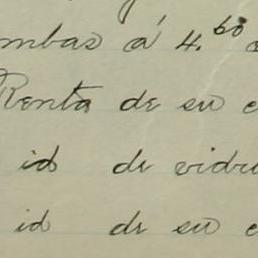 mbas á 4.60
Renta de su c
id de vidri
id de su c